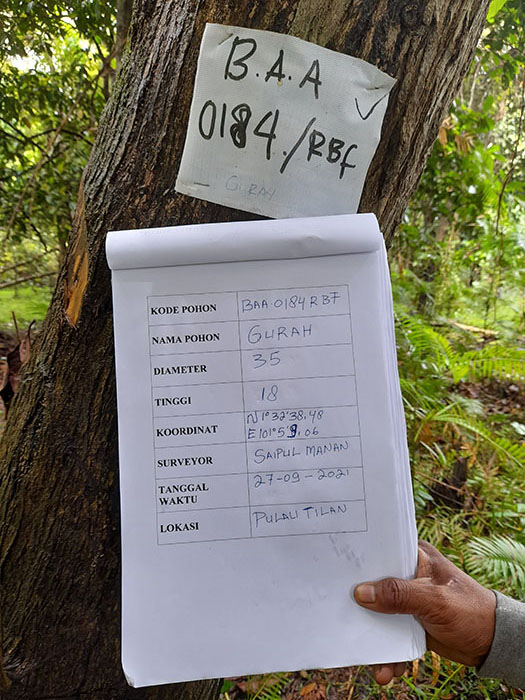 B.A.A
0184./RBF
GURAH
KODE POHON BAA.0184 RBF
NAMA POHON GURAH
DIAMETER 35
TINGGI 18
KOORDINAT N 1°32'38.48
E 101°5'9.06
SURVEYOR SAIPUL MANAN
TANGGAL WAKTU 27-09-2021
LOKASI PULAU TILAN